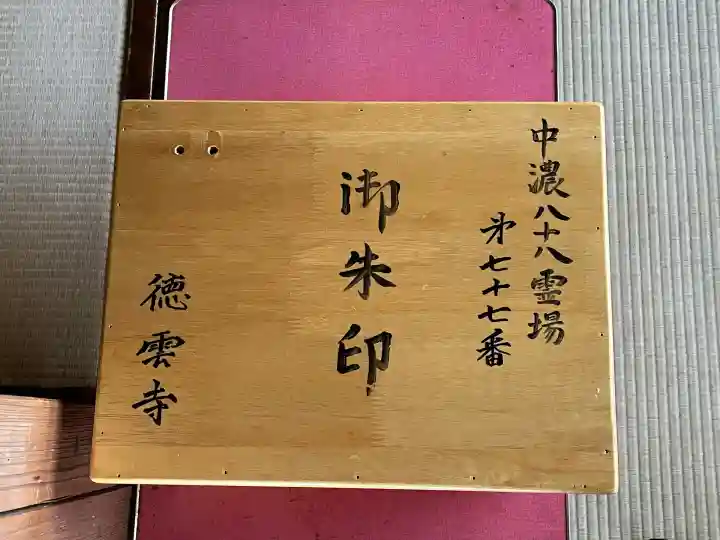 中濃八十八霊場
第七十七番
御朱印
徳雲寺